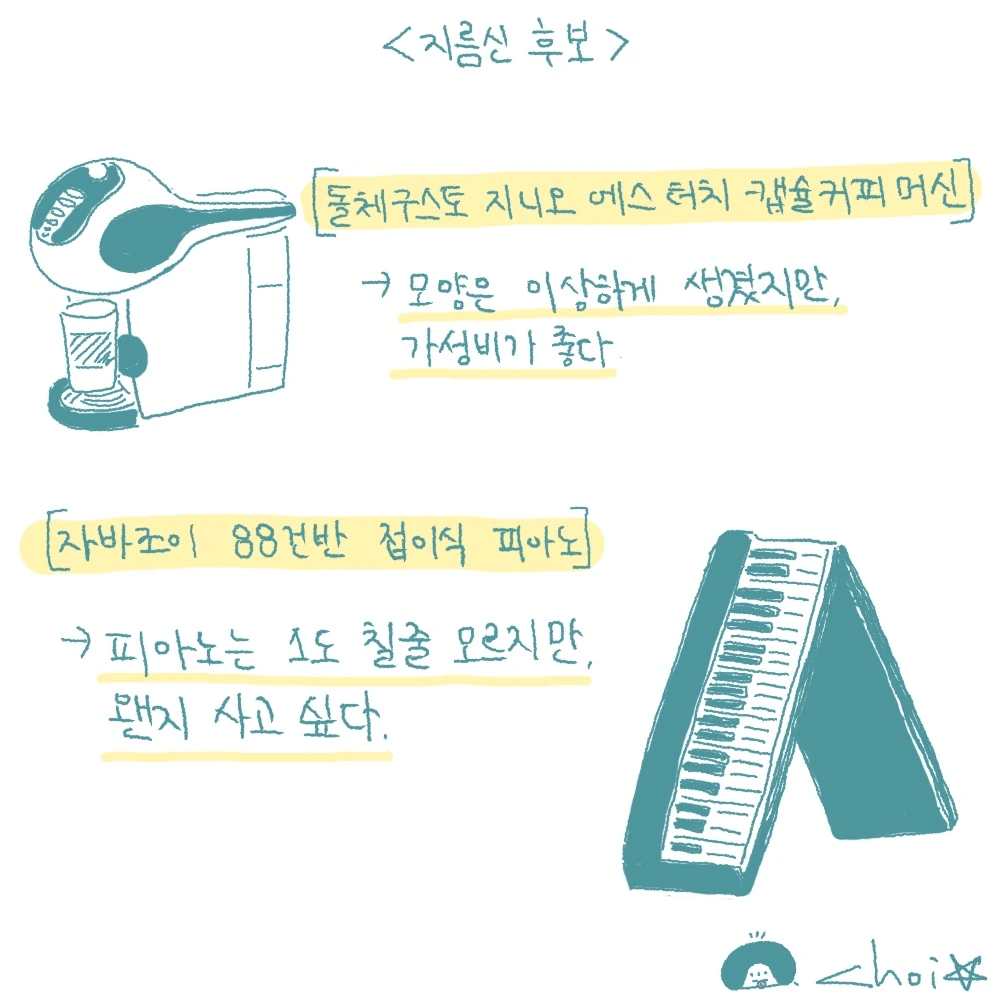 <지름신 후보>
[돌체구스토 지니오 에스 터치 캡슐커피 머신]
→ 모양은 이상하게 생겼지만,
가성비가 좋다.
[자바조이 88건반 접이식 피아노]
→ 피아노는 1도 칠줄 모르지만,
왠지 사고 싶다.
choi